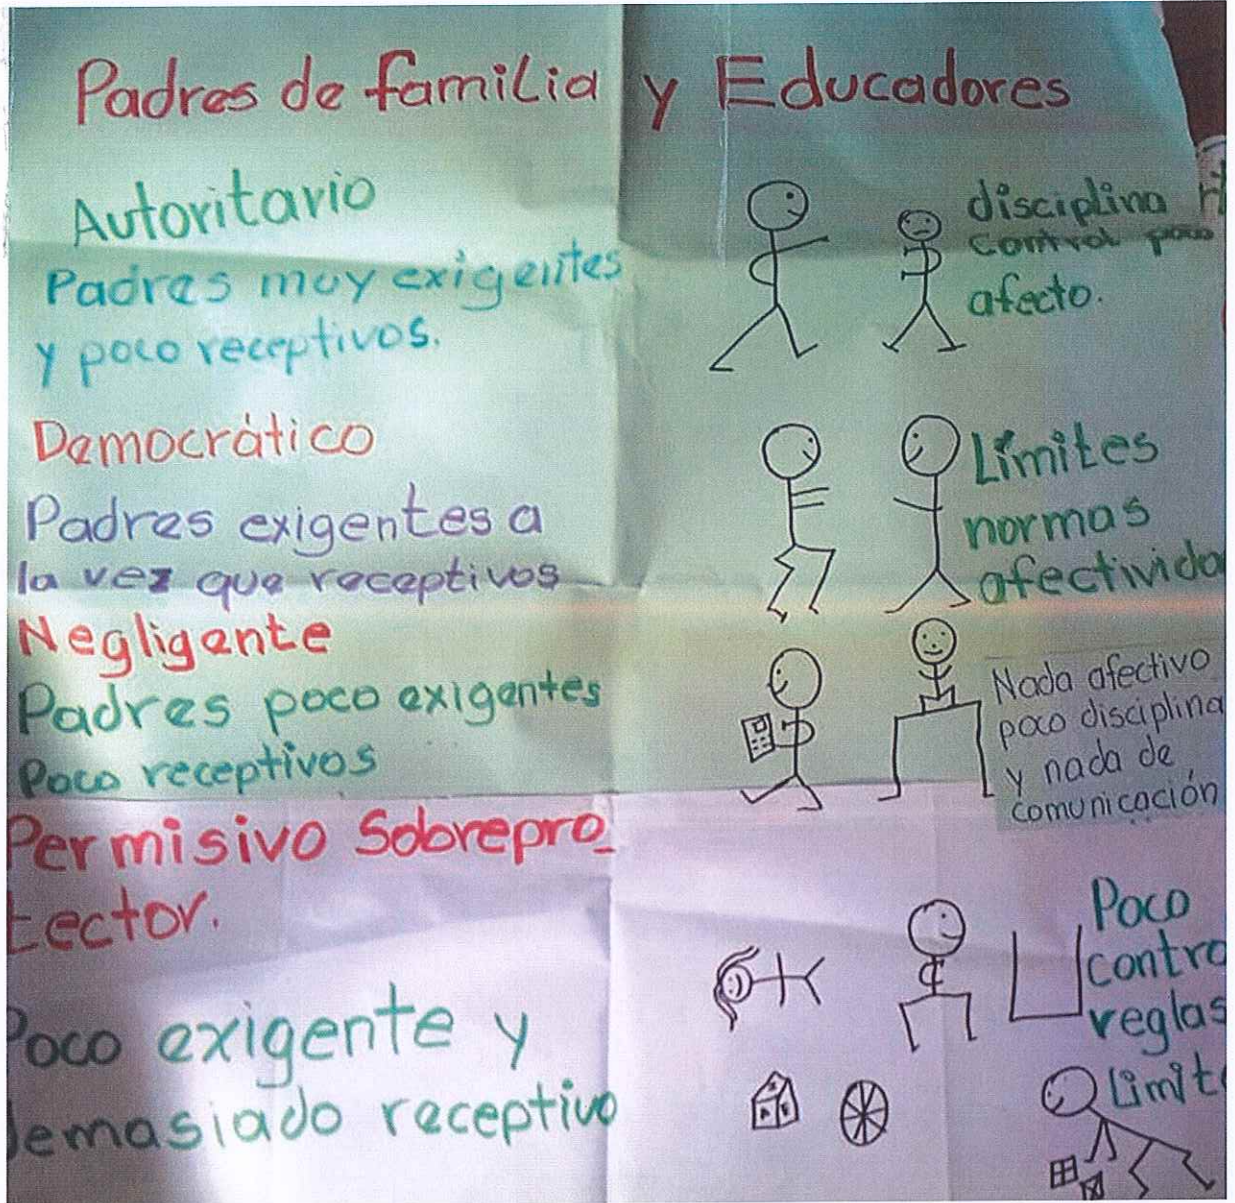 Padres de familia y Educadores
Autoritario
Padres muy exigentes
y poco receptivos.
disciplina
control poco
afecto.
Democrático
Padres exigentes a
la vez que receptivos
Límites
normas
afectivida
Negligente
Padres poco exigentes
Poco receptivos
Nada afectivo
poco disciplina
y nada de
comunicación
Permisivo Sobrepro_
tector.
Poco exigente y
demasiado receptivo
Poco
contro
reglas
limite